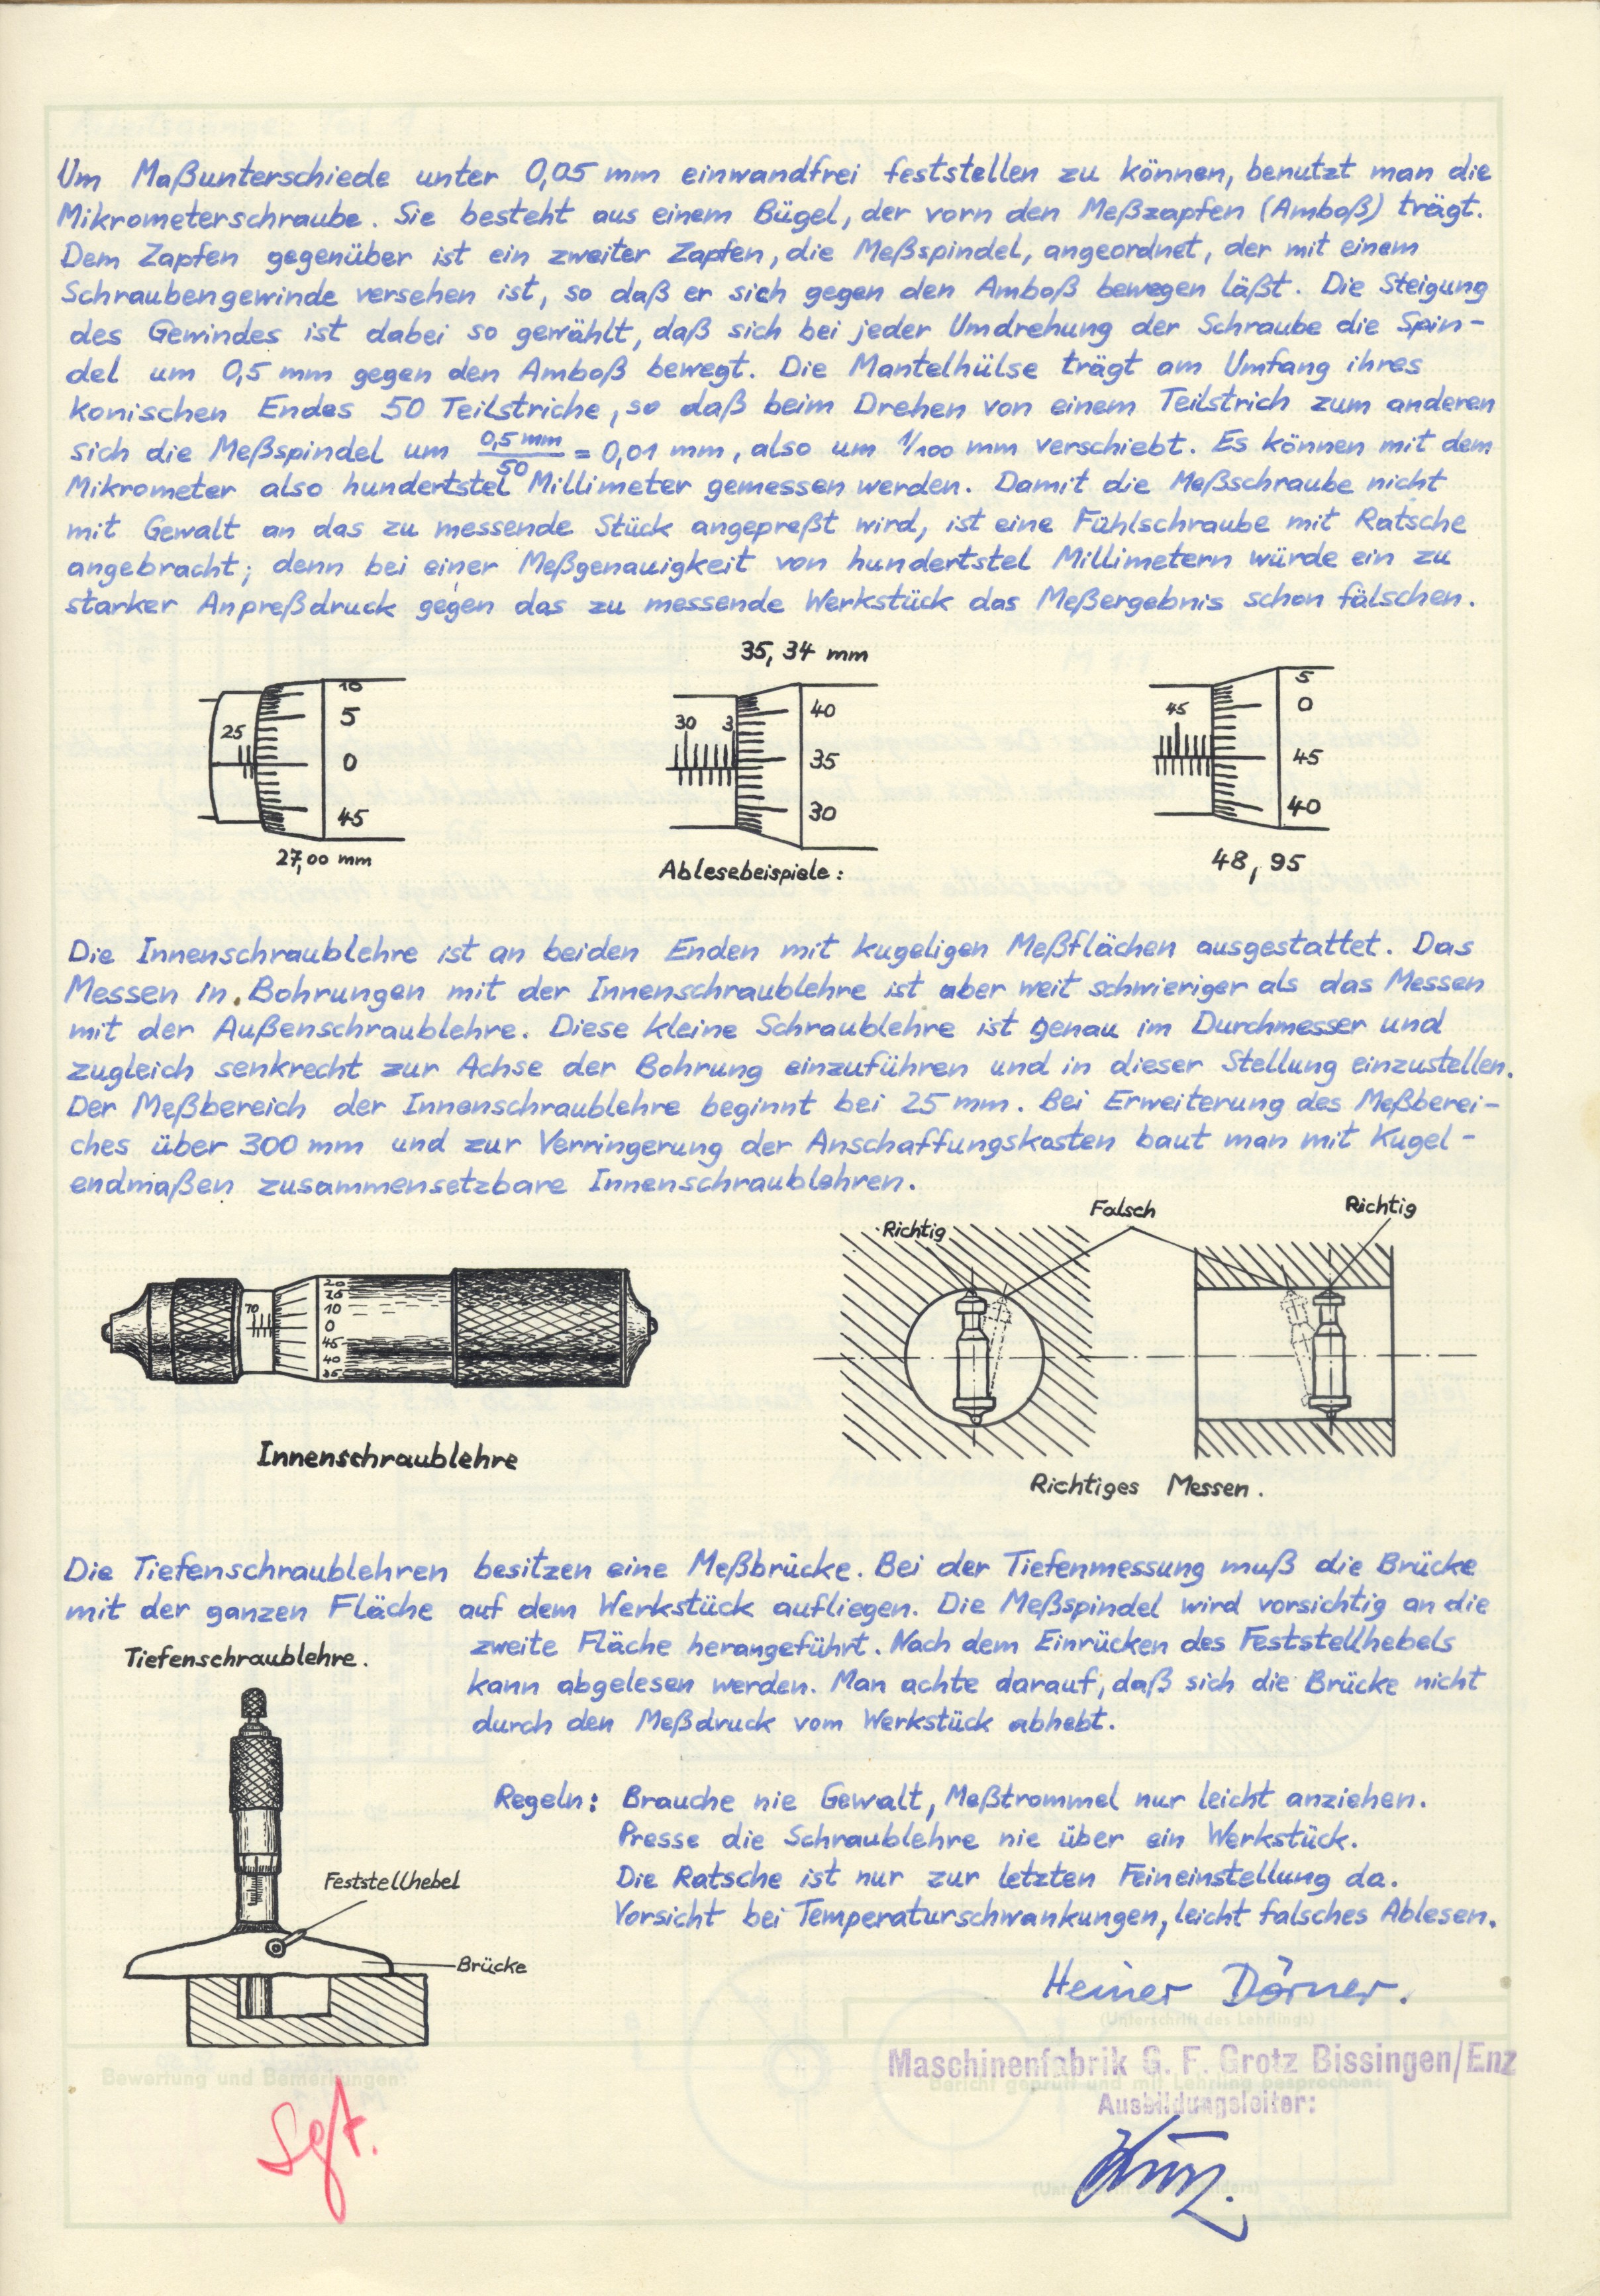 Um Maßunterschiede unter 0,05 mm einwandfrei feststellen zu können, benutzt man die
Mikrometerschraube. Sie besteht aus einem Bügel, der vorn den Meßzapfen (Amboß) trägt.
Dem Zapfen gegenüber ist ein zweiter Zapfen, die Meßspindel, angeordnet, der mit einem
Schraubengewinde versehen ist, so daß er sich gegen den Amboß bewegen läßt. Die Steigung
des Gewindes ist dabei so gewählt, daß sich bei jeder Umdrehung der Schraube die Spin-
del um 0,5 mm gegen den Amboß bewegt. Die Mantelhülse trägt am Umfang ihres
konischen Endes 50 Teilstriche, so daß beim Drehen von einem Teilstrich zum anderen
sich die Meßspindel um 0,5 mm/50 = 0,01 mm, also um 1/100 mm verschiebt. Es können mit dem
Mikrometer also hundertstel Millimeter gemessen werden. Damit die Meßschraube nicht
mit Gewalt an das zu messende Stück angepreßt wird, ist eine Fühlschraube mit Ratsche
angebracht; denn bei einer Meßgenauigkeit von hundertstel Millimetern würde ein zu
starker Anpreßdruck gegen das zu messende Werkstück das Meßergebnis schon fälschen.
35,34 mm
25 10 5 0 45
30 3 40 35 30
45 5 0 45 40
27,00 mm
Ablesebeispiele:
48,95
Die Innenschraublehre ist an beiden Enden mit kugeligen Meßflächen ausgestattet. Das
Messen in Bohrungen mit der Innenschraublehre ist aber weit schwieriger als das Messen
mit der Außenschraublehre. Diese kleine Schraublehre ist genau im Durchmesser und
zugleich senkrecht zur Achse der Bohrung einzuführen und in dieser Stellung einzustellen.
Der Meßbereich der Innenschraublehre beginnt bei 25 mm. Bei Erweiterung des Meßberei-
ches über 300 mm und zur Verringerung der Anschaffungskosten baut man mit Kugel-
endmaßen zusammensetzbare Innenschraublehren.
Richtig
Falsch
Richtig
70 20 10 0 45 40 35
Innenschraublehre
Richtiges Messen.
Die Tiefenschraublehren besitzen eine Meßbrücke. Bei der Tiefenmessung muß die Brücke
mit der ganzen Fläche auf dem Werkstück aufliegen. Die Meßspindel wird vorsichtig an die
zweite Fläche herangeführt. Nach dem Einrücken des Feststellhebels
kann abgelesen werden. Man achte darauf, daß sich die Brücke nicht
durch den Meßdruck vom Werkstück abhebt.
Tiefenschraublehre.
Regeln: Brauche nie Gewalt, Meßtrommel nur leicht anziehen.
Presse die Schraublehre nie über ein Werkstück.
Die Ratsche ist nur zur letzten Feineinstellung da.
Vorsicht bei Temperaturschwankungen, leicht falsches Ablesen.
Feststellhebel
Brücke
Heiner Dörner.
(Unterschrift des Lehrlings)
Maschinenfabrik G. F. Grotz Bissingen/Enz
Bewertung und Bemerkungen:
Bericht geprüft und mit Lehrling besprochen:
Ausbildungsleiter: